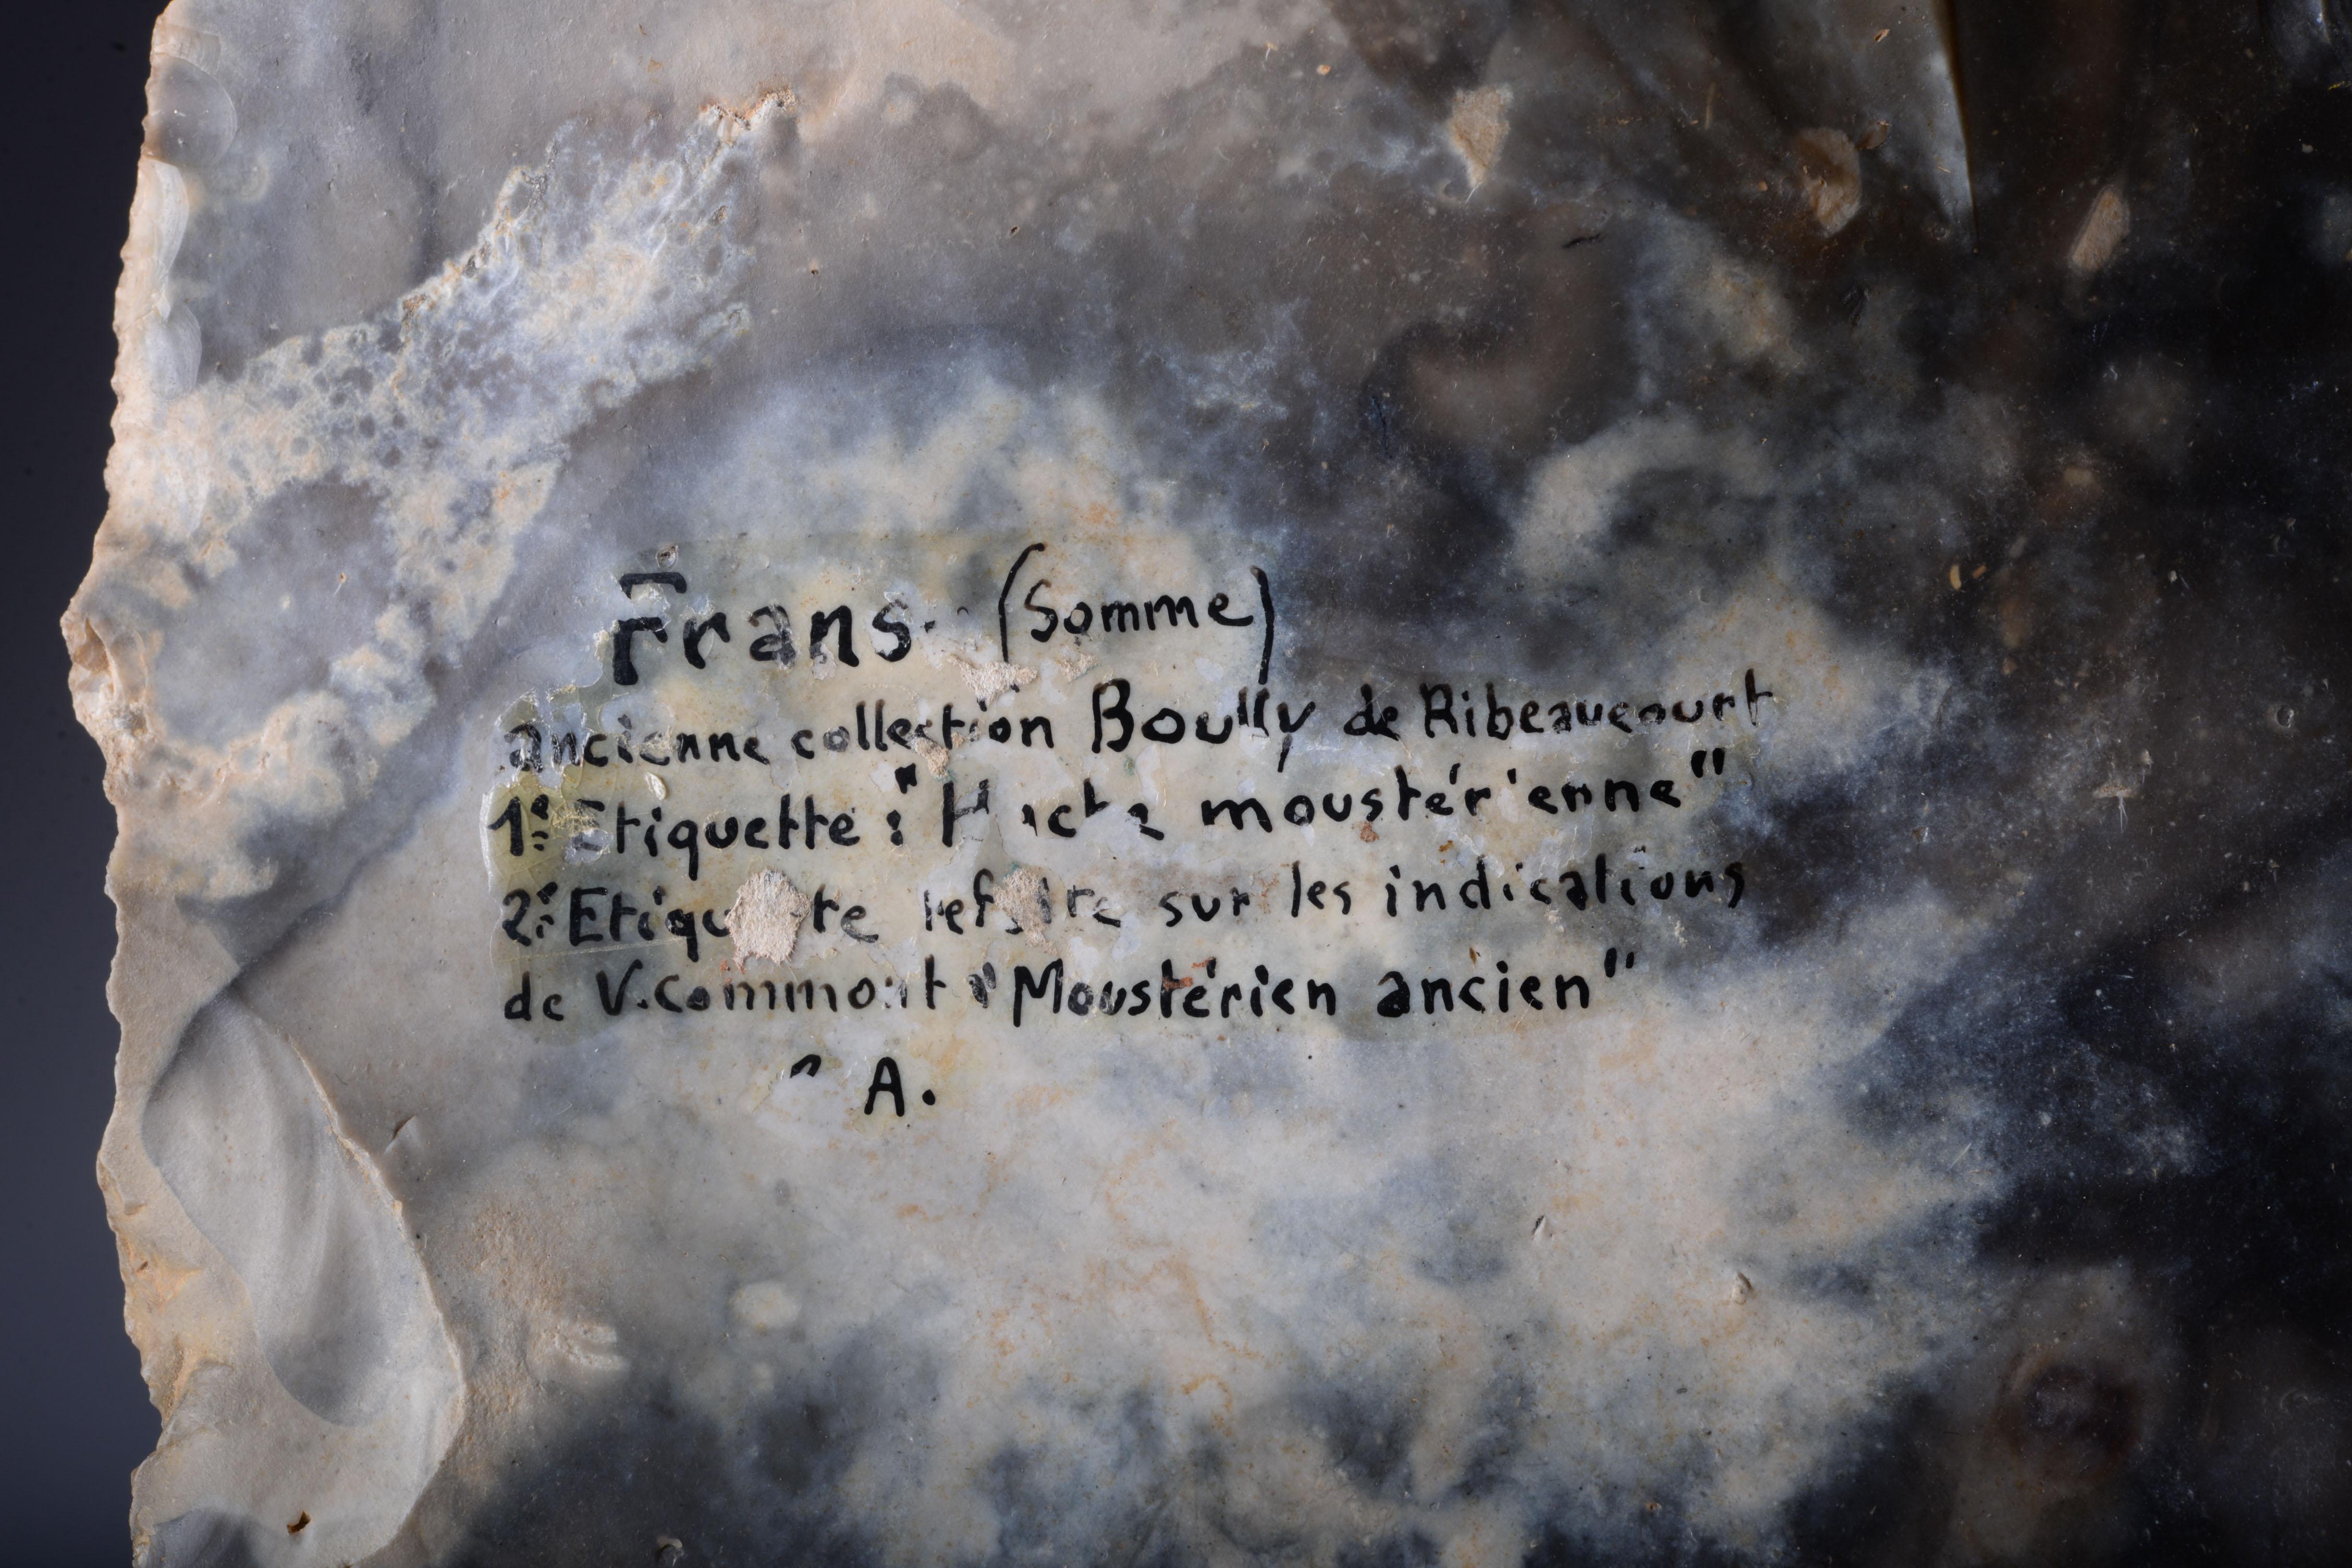 Frans. (Somme)
ancienne collection Boully de Ribeaucourt
1e Etiquette : " moustérienne"
2e Etiquette refaite sur les indications
de V. Commont "Moustérien ancien"
A.